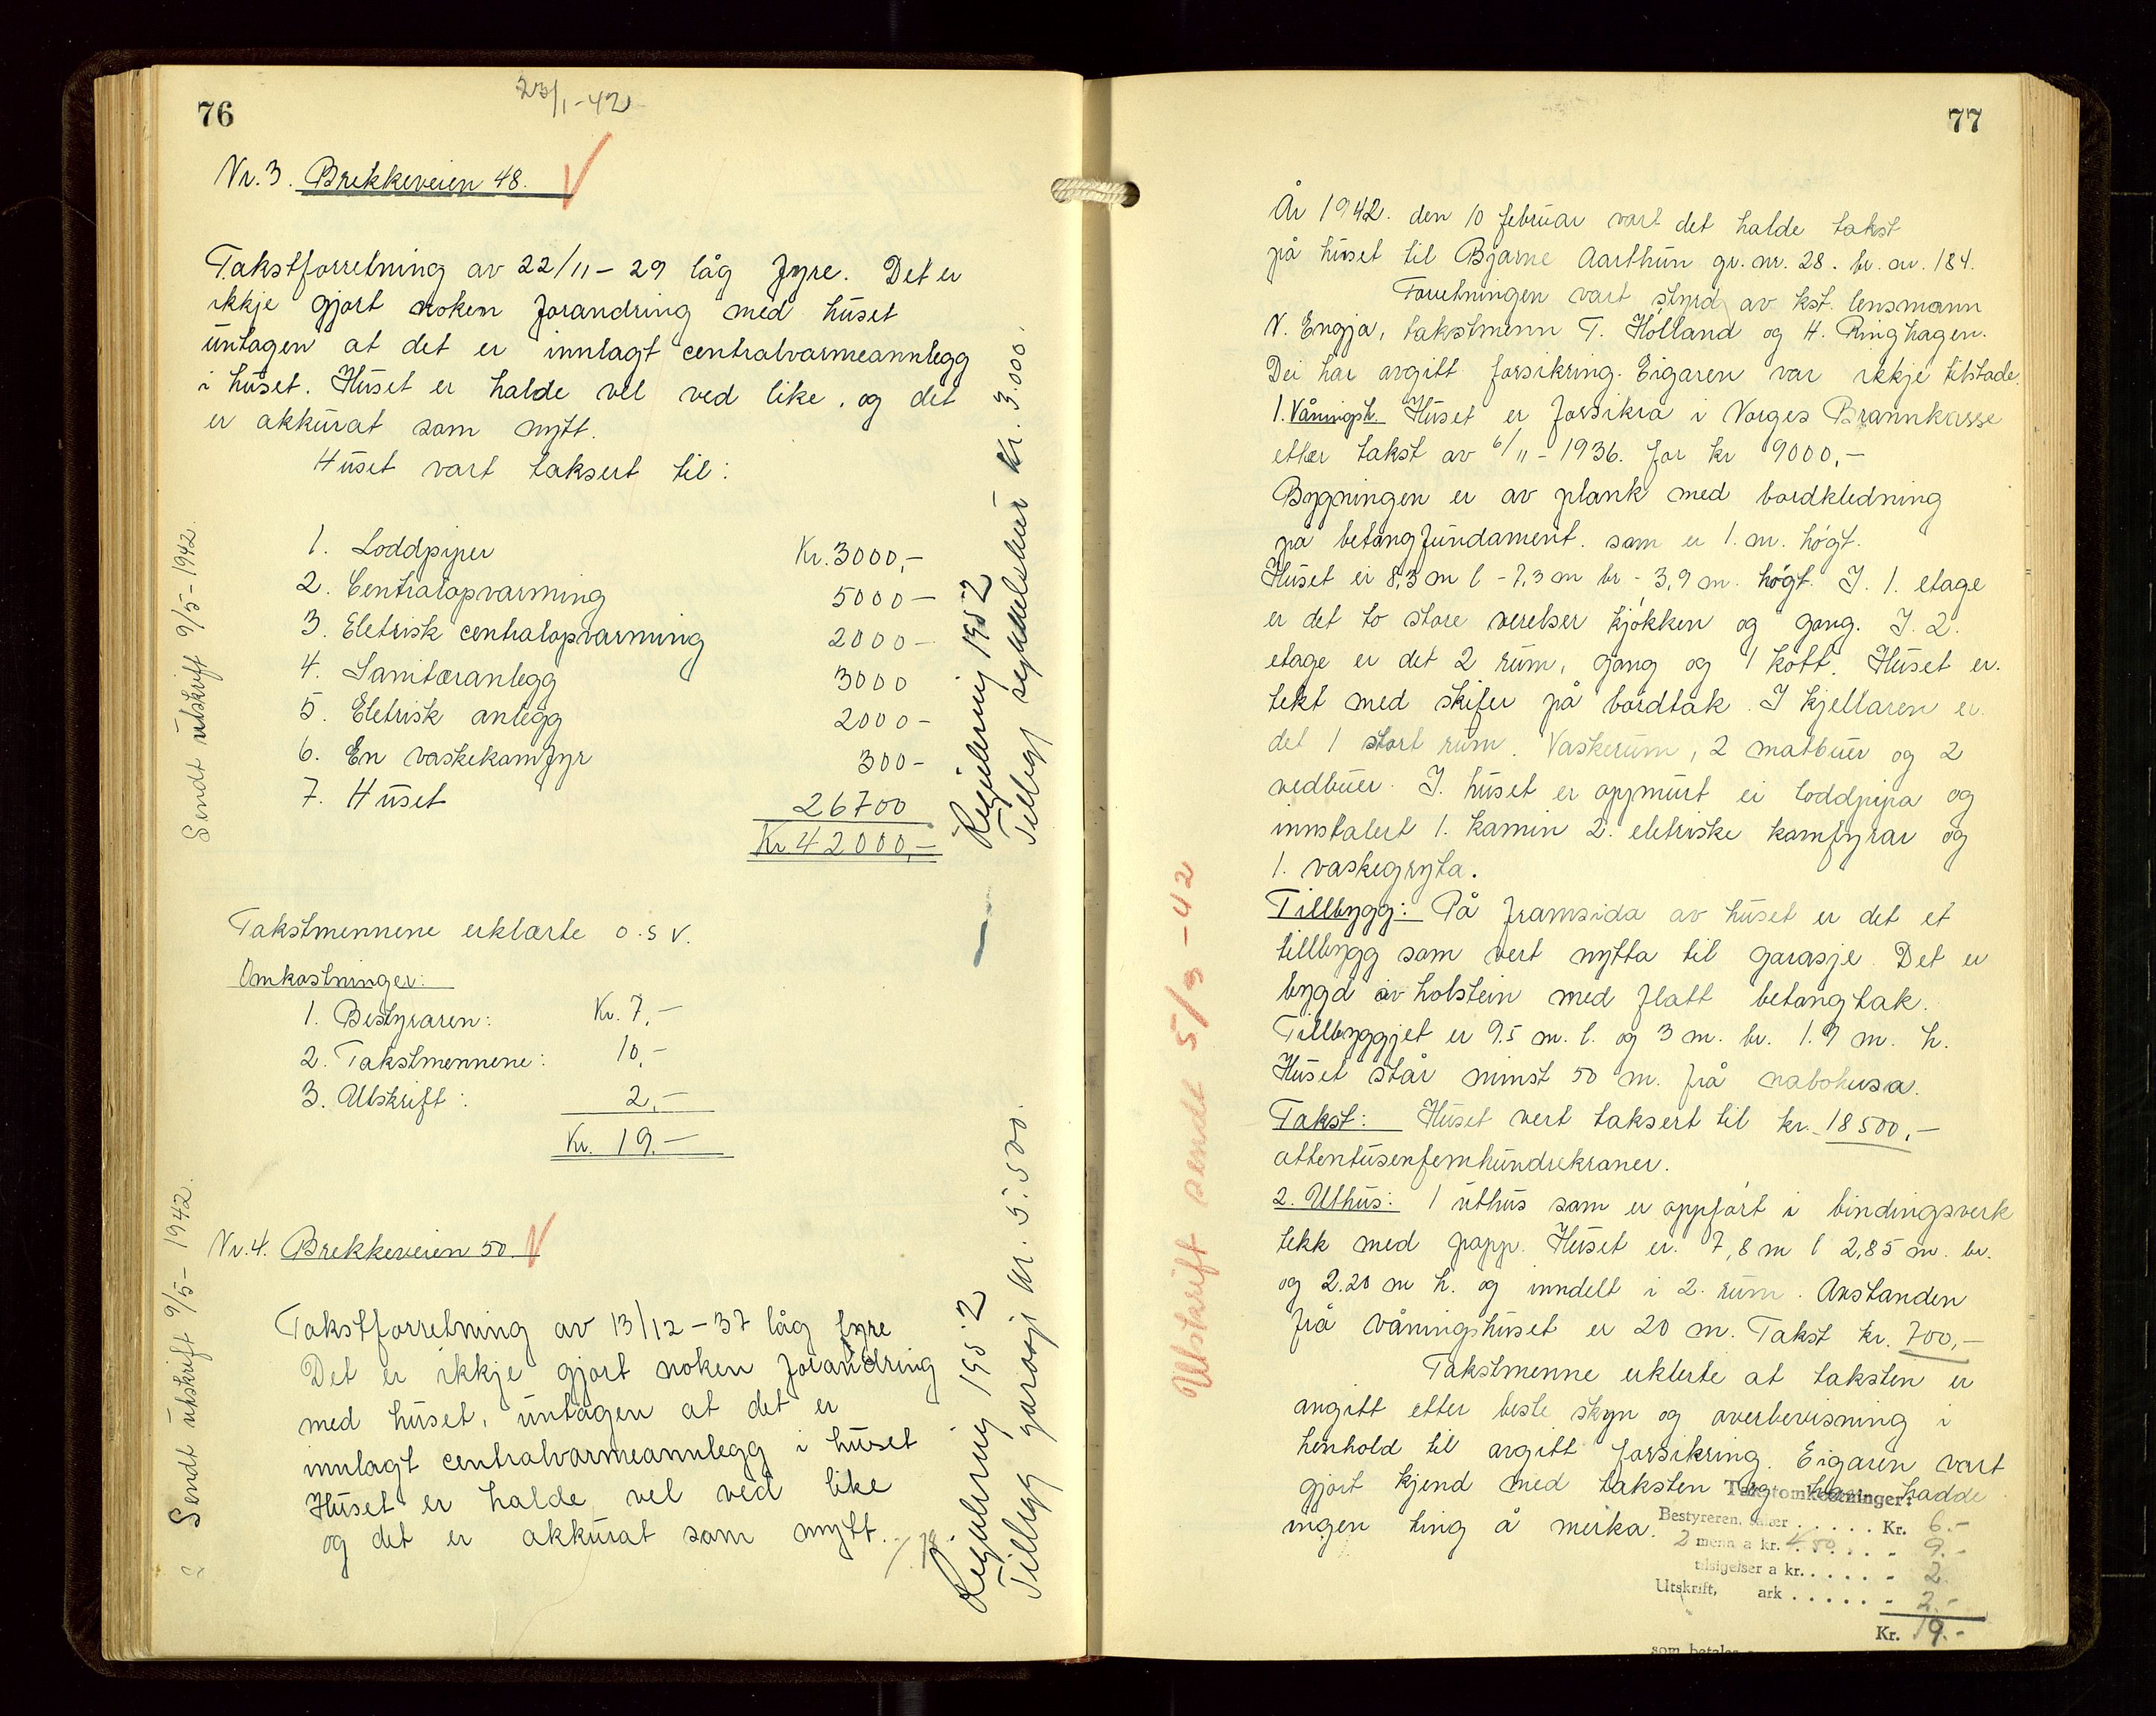 76
23/1-42
Nr. 3. Brekkeveien 48.
Takstforretning av 22/11-29 låg fyre. Det er
ikkje gjort noken forandring med huset
untagen at det er innlagt centralvarmeannlegg
i huset. Huset er halde vel ved like. og det
er akkurat som nytt.
Huset vart taksert til:
1. Loddpiper Kr. 3000,-
2. Centralopvarming 5000-
3. Eletrisk centralopvarming 2000-
4. Sanitæranlegg 3000
5. Eletrisk anlegg 2000-
6. En vaskekomfyr 300-
7. Huset 26700
Kr. 42000,-
Takstmennene erklærte o.s v.
Omkostninger:
1. Bestyraren: Kr. 7,-
2. Takstmennene: 10,-
3. Utskrift: 2,-
Kr. 19.-
Nr. 4. Brekkeveien 50.
Takstforretning av 13/12-37 låg fyre
Det er ikkje gjort noken forandring
med huset, untagen at det er
innlagt centralvarmeannlegg i huset
Huset er halde vel ved like
og det er akkurat som nytt.
Sendt utskrift 9/5-1942.
Sendt utskrift 9/5-1942.
Regulering 1952
Tillegg sykkelskur kr. 3.000.
Regulering 1952
Tillegg garasje kr. 5.500.
77
År 1942. den 10 februar vart det halde takst
på huset til Bjarne Aarthun gr. nr. 28. br. nr. 184.
Forretningen vart styrd av kst. lensmann
N. Engja, takstmenn T. Holland og H. Ringhagen.
Dei har avgitt forsikring. Eigaren var ikkje tilstade.
1. Våningsh. Huset er forsikra i Norges Brannkasse
etter takst av 6/11-1936. for kr 9000,-
Bygningen er av plank med bordkledning
på betongfundament. som er 1. m. høgt.
Huset er 8,3 m l - 7,3 m br - 3,9 m. høgt. I. 1. etage
er det to store verelser kjøkken og gong. I. 2.
etage er det 2 rum, gong og 1 kott. Huset er.
tekt med skifer på bordtak. I kjellaren er.
det 1 stort rum. Vaskerum, 2 matbuer og 2
vedbuer. I. huset er oppmurt ei loddpipa og
innstalert 1. kamin 2. eletriske komfyrar og
1. vaskegryta.
Tillbygg: På framsida av huset er det et
tillbygg som vert nytta til garasje. Det er
bygd av holstein med flatt betongtak.
Tillbyggjet er 9.5 m. l. og 3 m. br. 1.9 m. h.
Huset står minst 50 m. frå nabohusa.
Takst: Huset vert taksert til kr. 18500,-
attentusenfemhundrekroner.
2. Uthus: 1 uthus som er oppført i bindingsverk
tekk med papp. Huset er. 7,8 m l 2,85 m. br.
og 2.20 m h. og inndelt i 2. rum. Avstanden
frå våningshuset er 20 m. Takst kr. 700,-
Takstmenne erklerte at taksten er
avgitt etter beste skyn og overbevisning i
henhold til avgitt forsikring. Eigaren vart
gjort kjend med taksten og han hadde
ingen ting å merka.
Takstomkostninger:
Bestyreren, salær . . . . . Kr. 6.-
2 menn a kr. 4.50 . . . . - 9.-
tilsigelser a kr. . . . . . - 2.
Utskrift, ark . . . . . . - 2.-
Kr. 19.-
som betales
Utskrift sendt 5/3-42